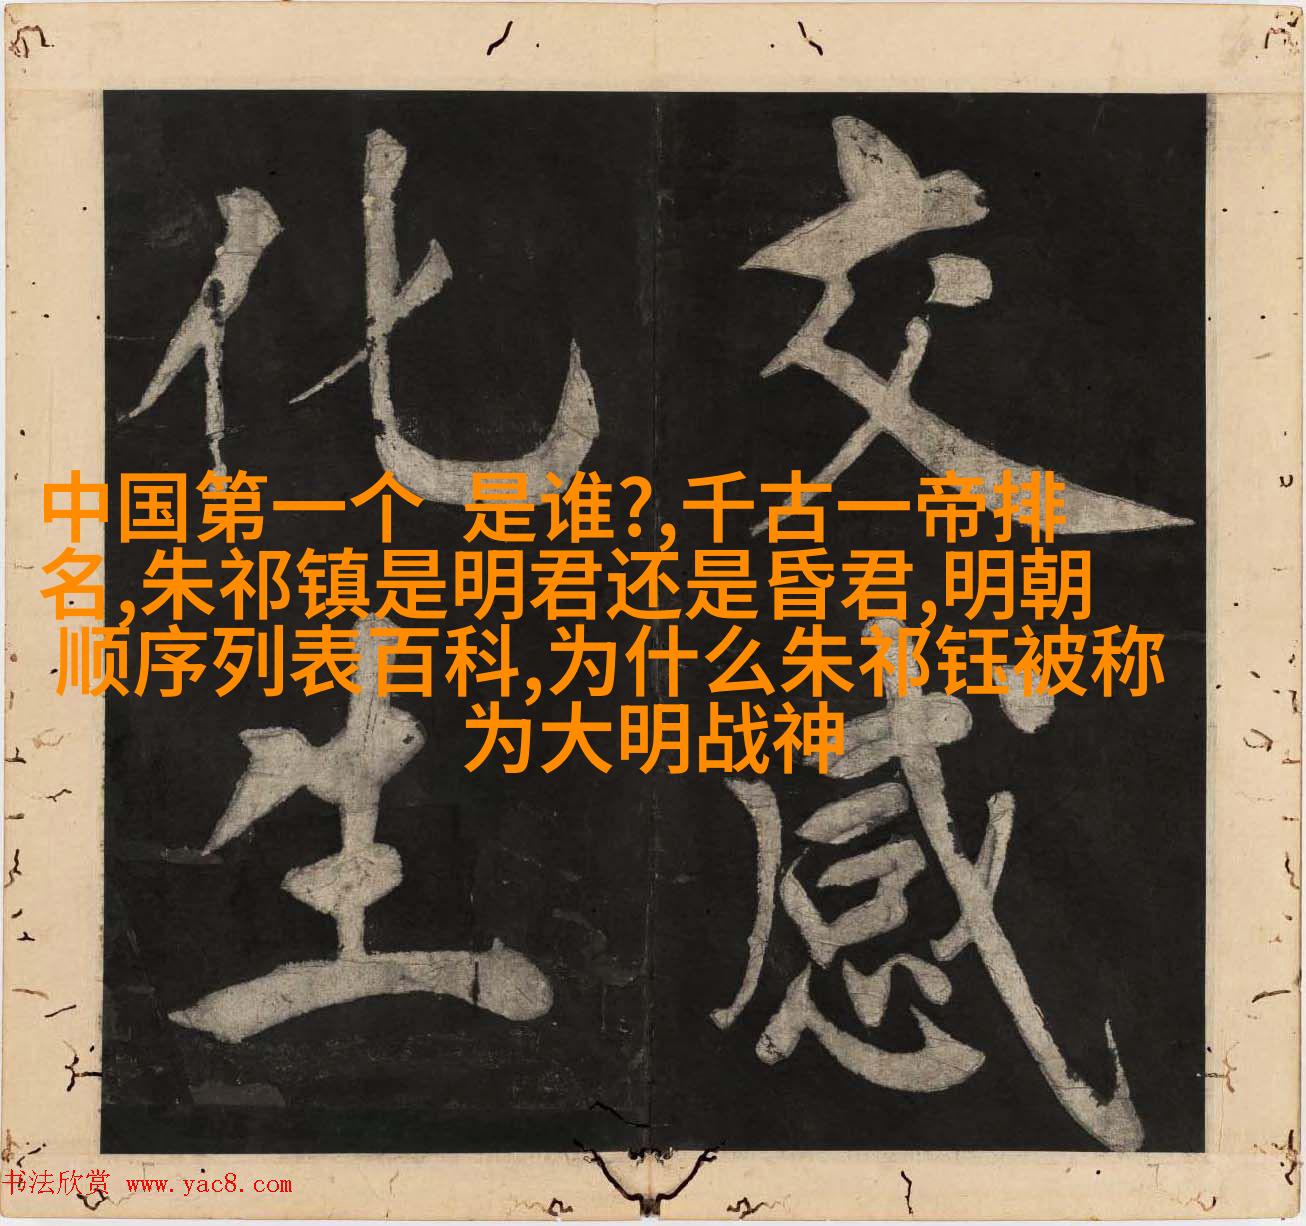 中国第一个 是谁?,千古一帝排
名,朱祁镇是明君还是昏君,明朝
顺序列表百科,为什么朱祁钰被称
为大明战神
交感
化生
书法欣赏 www.yac8.com